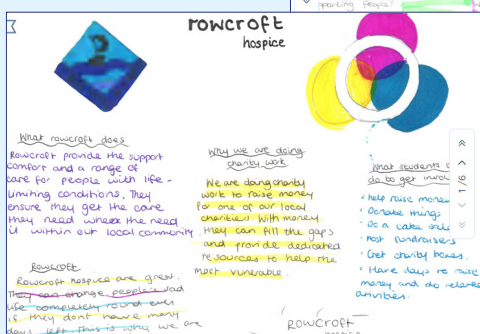 pporting people?
rowcroft
hospice
What rowcroft does
Rowcroft provide the support
comfort and a range of
care for people with life-
limiting conditions. They
ensure they get the care
they need where the need
it within our local community.
Why we are doing
charity work
We are doing charity
work to raise money
for one of our local
charities. With money
they can fill the gaps
and provide dedicated
resources to help the
most vunerable.
What students c
do to get involv
help raise money
Donate things
Do a cake sale
host fundraisers
Get charity boxes.
Have days to raise
money and do related
activities.
1/6
Rowcroft
Rowcroft hospice are great.
They can change people's sad
life completely round even
if they dont have many
days left This is why we are
rowcroft
hospice